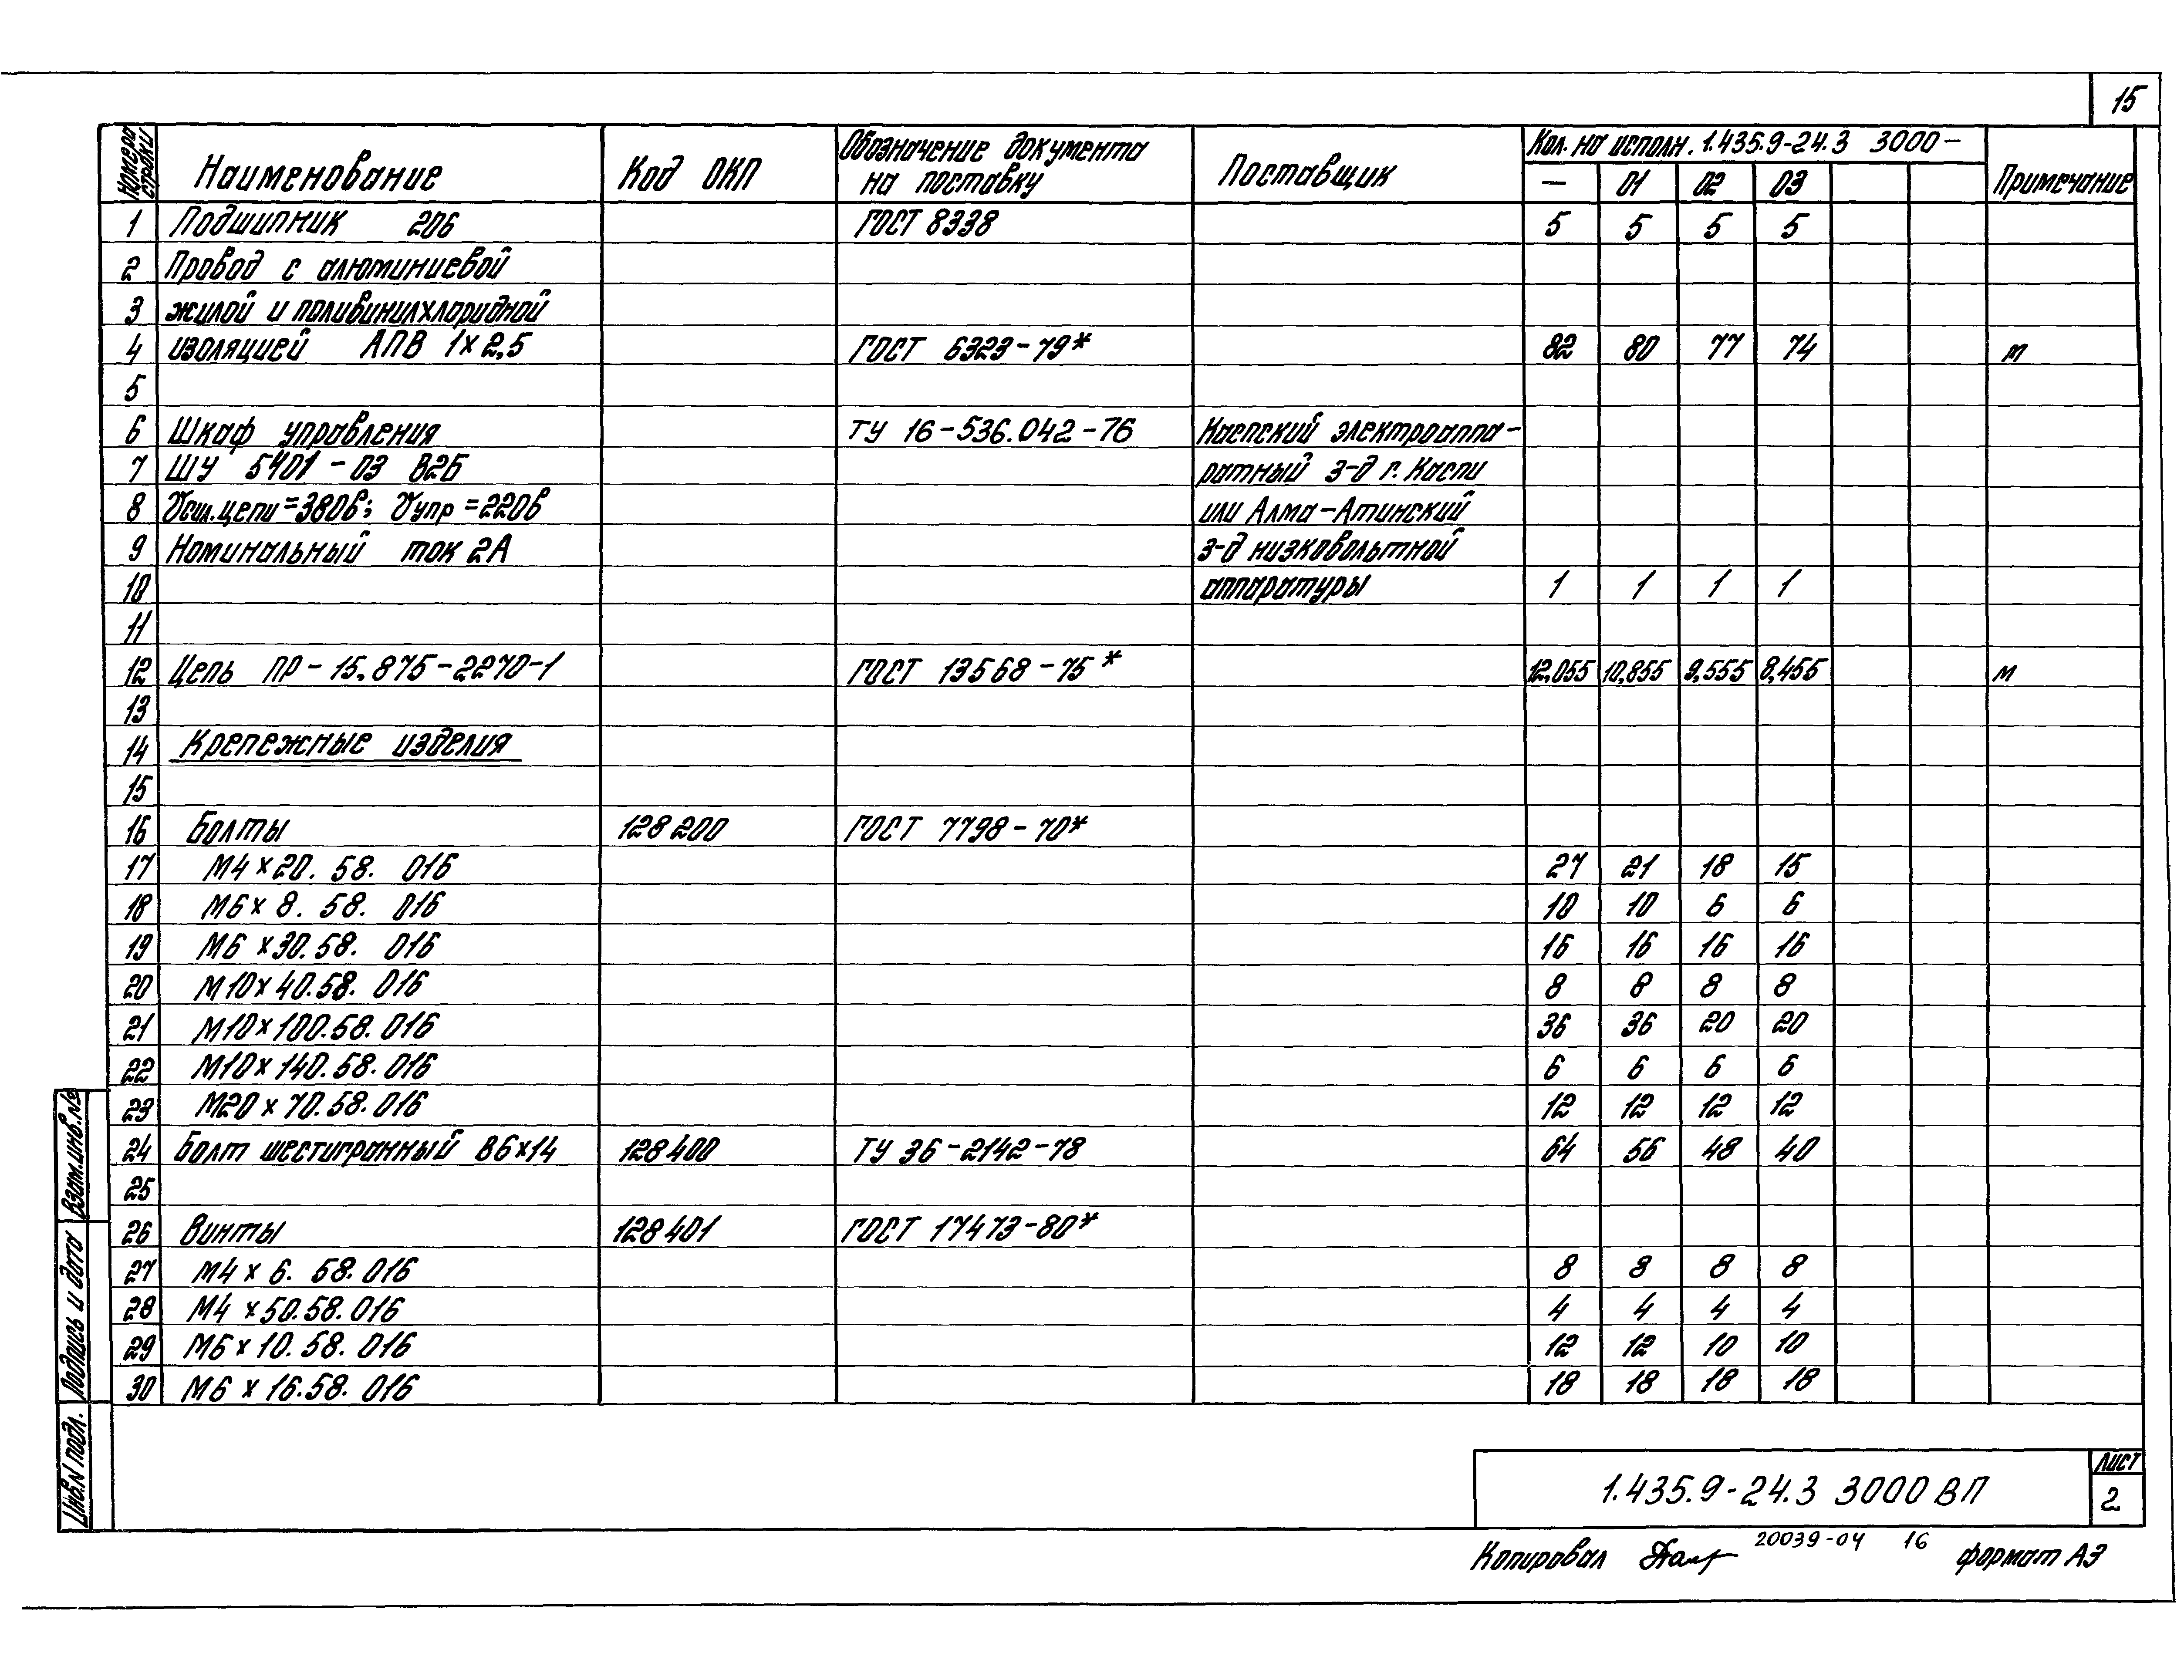 15
Номера строки | Наименование | Код ОКП | Обозначение документа на поставку | Поставщик | Кол. на исполн. 1.435.9-24.3 3000- | Примечание
— | 01 | 02 | 03
1 Подшипник 206 ГОСТ 8338 5 5 5 5
2 Провод с алюминиевой
3 жилой и поливинилхлоридной
4 изоляцией АПВ 1×2,5 ГОСТ 6323-79* 82 80 77 74 м
5
6 Шкаф управления ТУ 16-536.042-76 Каспский электроаппа-
7 ШУ 5401-03 В2Б ратный з-д г. Каспи
8 Uсил.цепи=380в; Uупр=220в или Алма-Атинский
9 Номинальный ток 2А з-д низковольтной
10 аппаратуры 1 1 1 1
11
12 Цепь ПР-15,875-2270-1 ГОСТ 13568-75* 12,055 10,855 9,555 8,455 м
13
14 Крепежные изделия
15
16 Болты 128200 ГОСТ 7798-70*
17 М4×20. 58. 016 27 21 18 15
18 М6×8. 58. 016 10 10 6 6
19 М6×30.58. 016 16 16 16 16
20 М10×40.58. 016 8 8 8 8
21 М10×100.58.016 36 36 20 20
22 М10×140.58.016 6 6 6 6
23 М20×70.58.016 12 12 12 12
24 Болт шестигранный В6×14 128400 ТУ 36-2142-78 64 56 48 40
25
26 Винты 128401 ГОСТ 17473-80*
27 М4×6. 58.016 8 8 8 8
28 М4×50.58.016 4 4 4 4
29 М6×10.58.016 12 12 10 10
30 М6×16.58.016 18 18 18 18
Взам.инв.№
Подпись и дата
Инв.N подл.
1.435.9-24.3 3000 ВП
Лист
2
Копировал 20039-04 16 формат А3